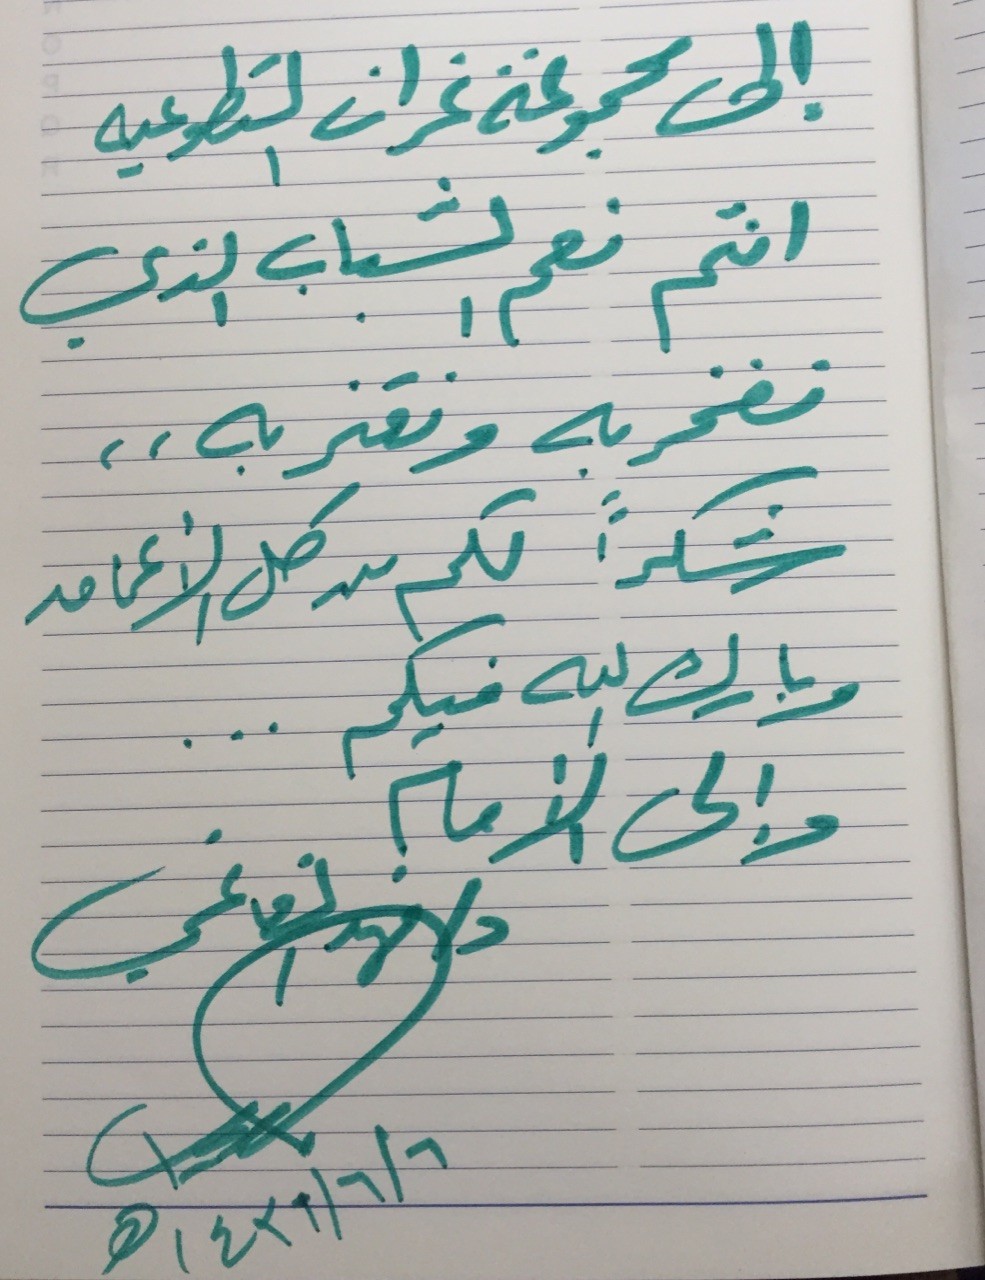 إلى مجموعة غران التطوعيه
انتم نعم الشباب الذي
نفخر به ونعتز به ،،
شكراً لكم من كل الأعماق
وبارك الله فيكم ...
وإلى الأمام
د/ فهد
٦/٦/ هـ